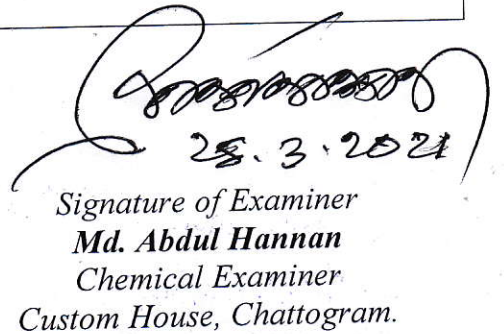 28.3.2021
Signature of Examiner
Md. Abdul Hannan
Chemical Examiner
Custom House, Chattogram.